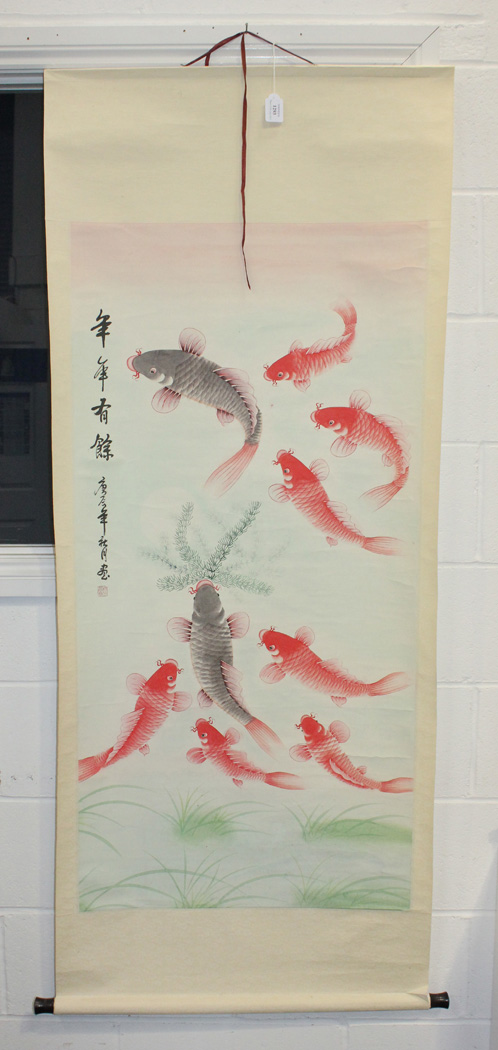 年年有餘
庚辰年秋月画